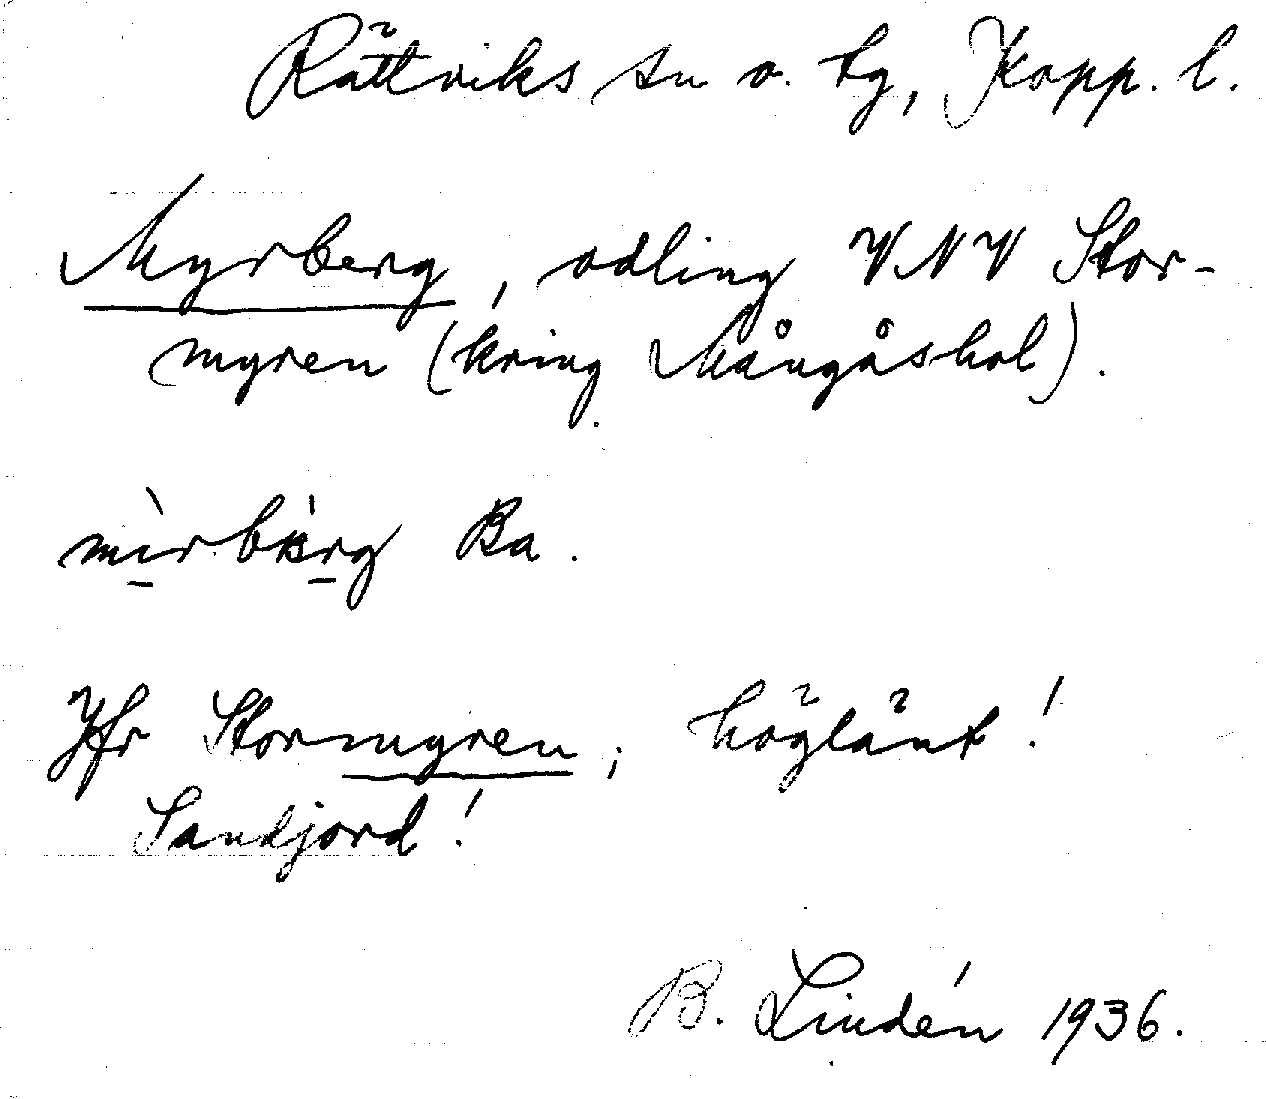 Rättviks sn o. tg, Kopp. l.
Myrberg, odling VNV Stor-
myren (kring Mångåshol).
Ba.
Jfr Stormyren; höglänt!
Sandjord!
B. Lindén 1936.